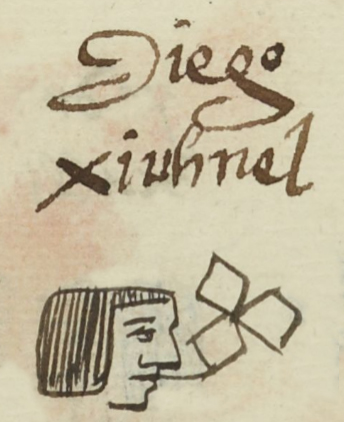 Diego
xiuhnel